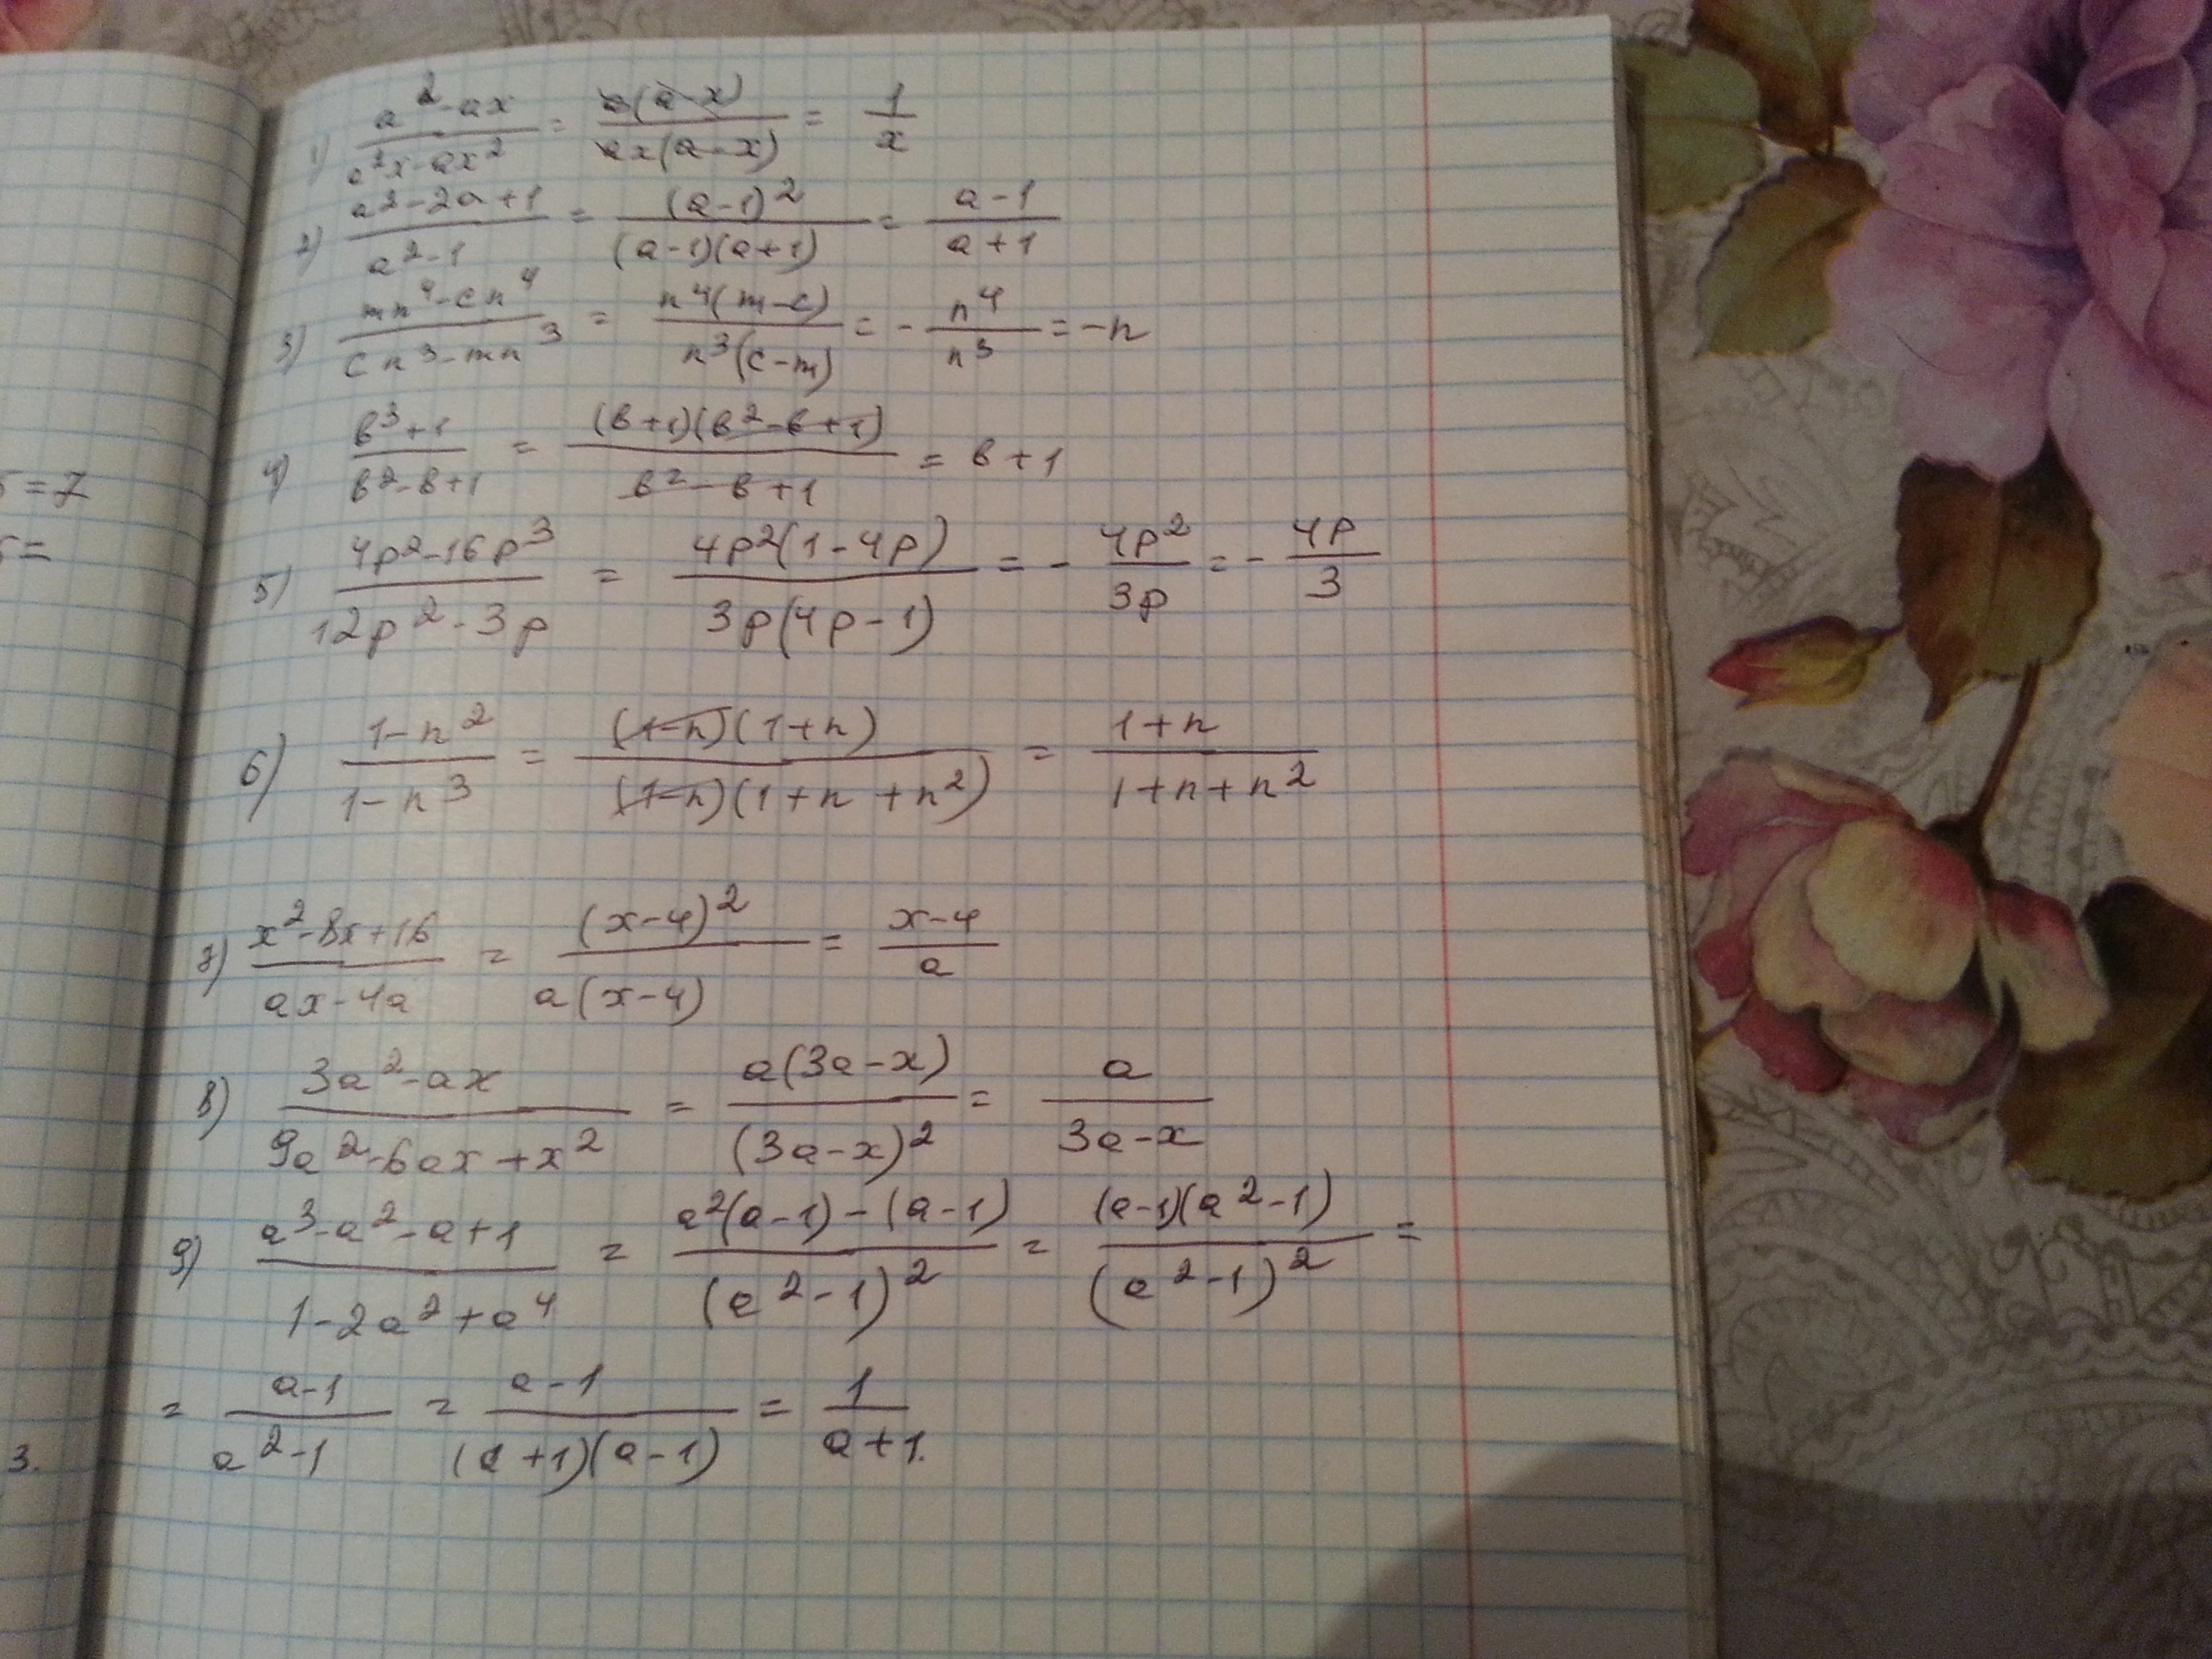 5=7
5=
3.
1) (a²-ax)/(a²x-ax²) = a(a-x)/(ax(a-x)) = 1/x
2) (a²-2a+1)/(a²-1) = (a-1)²/((a-1)(a+1)) = (a-1)/(a+1)
3) (mn⁴-cn⁴)/(cn³-mn³) = n⁴(m-c)/(n³(c-m)) = - n⁴/n³ = -n
4) (в³+1)/(в²-в+1) = (в+1)(в²-в+1)/(в²-в+1) = в+1
5) (4p²-16p³)/(12p²-3p) = 4p²(1-4p)/(3p(4p-1)) = - 4p²/3p = - 4p/3
6) (1-n²)/(1-n³) = (1-n)(1+n)/((1-n)(1+n+n²)) = (1+n)/(1+n+n²)
7) (x²-8x+16)/(ax-4a) = (x-4)²/(a(x-4)) = (x-4)/a
8) (3a²-ax)/(9a²-6ax+x²) = a(3a-x)/(3a-x)² = a/(3a-x)
9) (a³-a²-a+1)/(1-2a²+a⁴) = (a²(a-1)-(a-1))/(a²-1)² = (a-1)(a²-1)/(a²-1)² =
= (a-1)/(a²-1) = (a-1)/((a+1)(a-1)) = 1/(a+1).